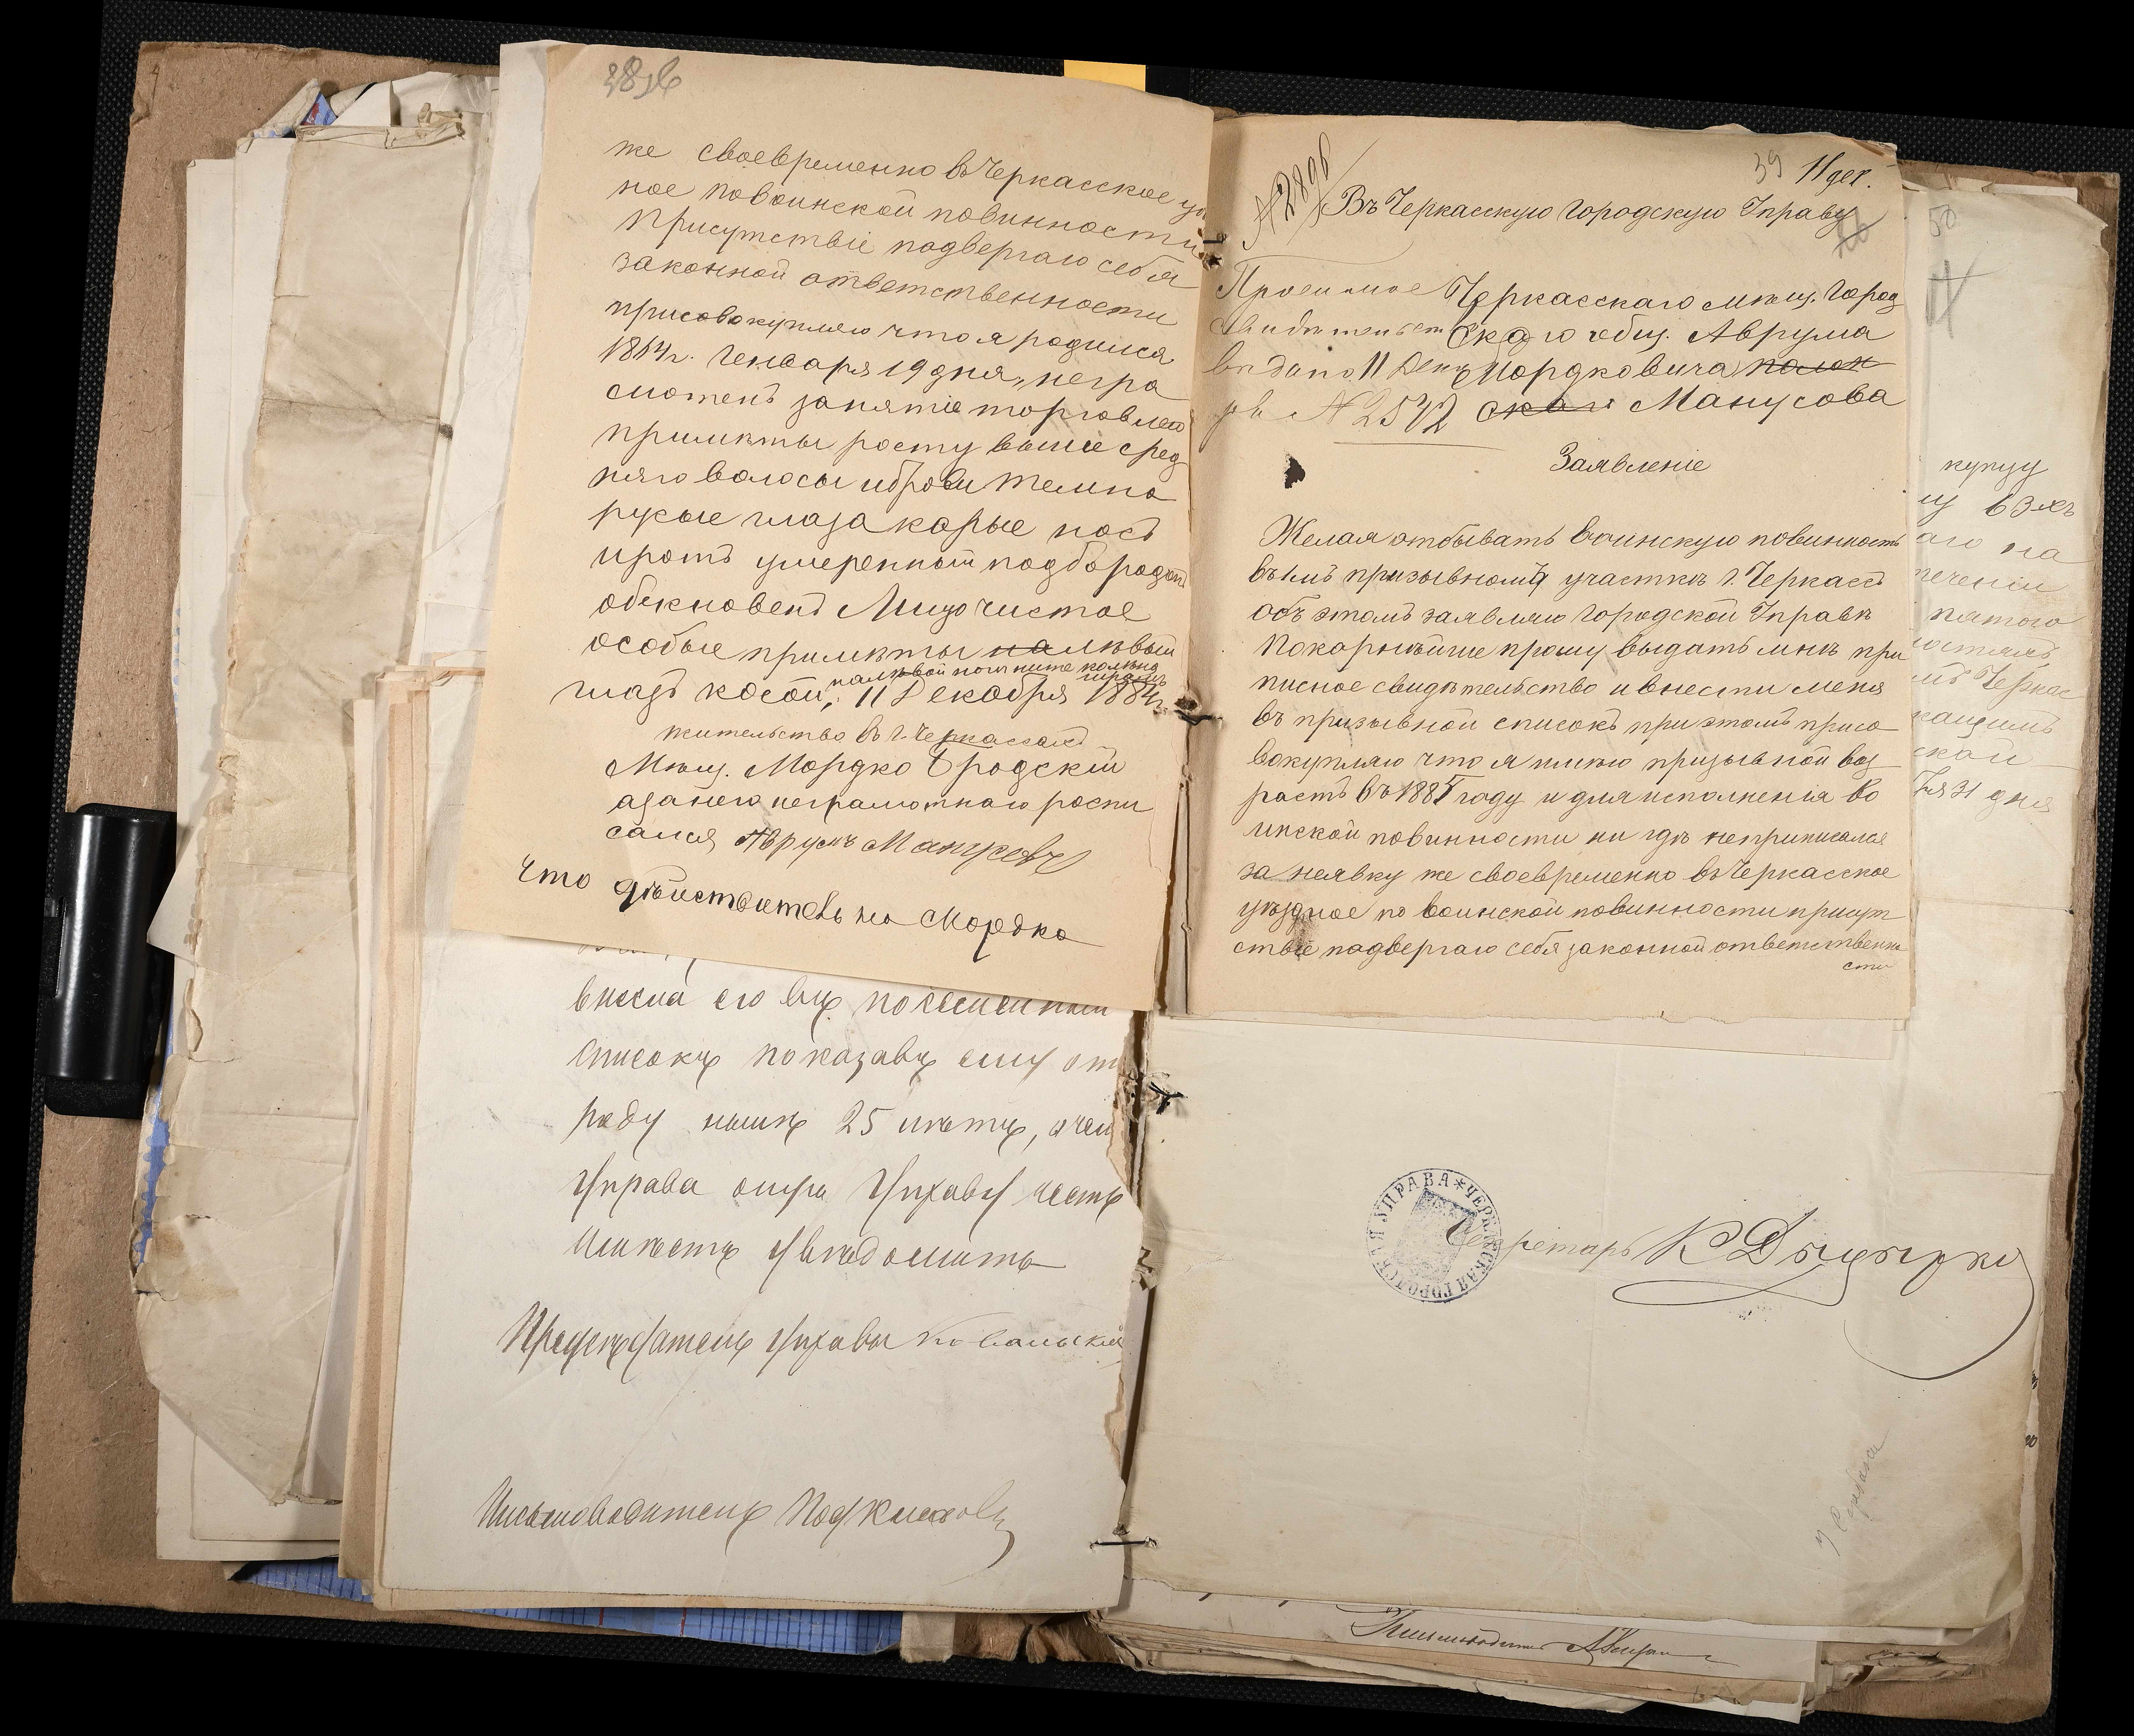 же своевременно въ Черкасское уѣ
ное по воинской повинности
присутствіе подвергаю себя
законной ответственности
присовокупляю что я родился
1864 г. Генваря 19 дня, негра
мотенъ занятіе торговлею
примѣты росту выше сред
няго волосы и брови темно
русые глаза карые носъ
иротъ умеренный подбородокъ
обекновенъ Лицо чистое
особые примѣты на лѣвый
на лѣвой ноги ниже колена шрамъ
глазъ косой, 11 Декабря 1884 г.
жительство въ г. Черкассахъ
Мѣщ. Мордко Бродскій
азанего неграмотнаго роспи
сался Аврумъ Манусовъ
Что действительно Мордко
внесла его въ посемейный
списокъ показавъ ему от
роду нынѣ 25 лѣтъ, о чем
Управа оную Управу честь
имѣетъ увѣдомить
Председатель Управы Ковальскій
Письмоводитель
39 11 дек.
№ 2896
Въ Черкасскую Городскую Управу
Просимое
свидѣтельст
выдано 11 Дека
ря № 2572
Черкасскаго мѣщ. Город
скаго общ. Аврума
Мордковича
Манусова
Заявленіе
Желая отбывать воинскую повинность
въ 1мъ призывномъ участкѣ г. Черкасъ
объ этомъ заявляю Городской Управѣ
Покорнѣйше прошу выдать мнѣ при
писное свидѣтельство и внести меня
въ призывной списокъ при этомъ присо
вокупляю что я имѣю призывной воз
растъ въ 1885 году и для исполненія во
инской повинности ни гдѣ неприписался
за неявку же своевременно въ Черкасское
уѣздное по воинской повинности присут
ствіе подвергаю себя законной ответственно
сти
50
купцу
аго на
теченіи
пятого
Черкас
31 дня
ЧЕРКАССКАЯ ГОРОДСКАЯ УПРАВА
Секретарь К
Письмоводитель